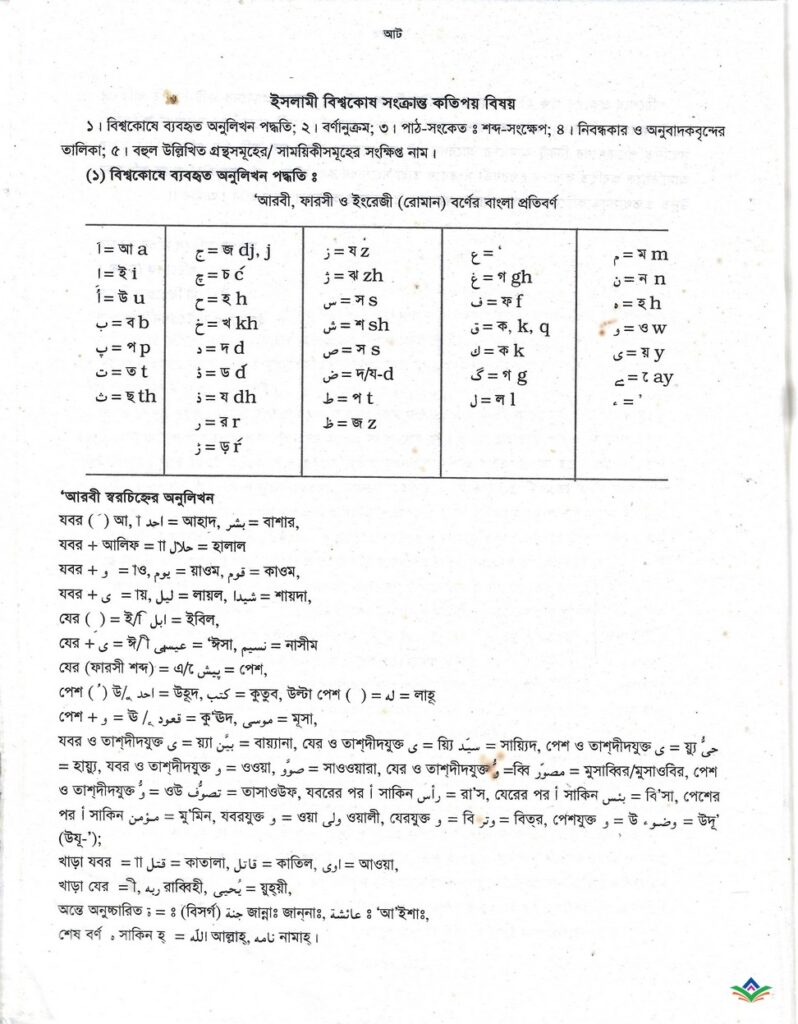 আট
ইসলামী বিশ্বকোষ সংক্রান্ত কতিপয় বিষয়
১। বিশ্বকোষে ব্যবহৃত অনুলিখন পদ্ধতি; ২। বর্ণানুক্রম; ৩। পাঠ-সংকেত ঃ শব্দ-সংক্ষেপ; ৪। নিবন্ধকার ও অনুবাদকবৃন্দের
তালিকা; ৫। বহুল উল্লিখিত গ্রন্থসমূহের/ সাময়িকীসমূহের সংক্ষিপ্ত নাম।
(১) বিশ্বকোষে ব্যবহৃত অনুলিখন পদ্ধতি ঃ
‘আরবী, ফারসী ও ইংরেজী (রোমান) বর্ণের বাংলা প্রতিবর্ণ
ا = আ a
ا = ই i
أ = উ u
ب = ব b
پ = প p
ت = ত t
ث = ছ th
ج = জ dj, j
چ = চ ć
ح = হ h
خ = খ kh
د = দ d
ڈ = ড d́
ذ = য dh
ر = র r
ڑ = ড় ŕ
ز = য z
ژ = ঝ zh
س = স s
ش = শ sh
ص = স s
ض = দ/য-d
ط = ত t
ظ = জ z
ع = ‘
غ = গ gh
ف = ফ f
ق = ক, k, q
ك = ক k
گ = গ g
ل = ল l
م = ম m
ن = ন n
ه = হ h
و = ও w
ى = য় y
ے = ে ay
ء = ’
‘আরবী স্বরচিহ্নের অনুলিখন
যবর (َ) আ, া احد = আহাদ, بشر = বাশার,
যবর + আলিফ = া حلال = হালাল
যবর + و = াও, يوم = য়াওম, قوم = কাওম,
যবর + ى = ায়, ليل = লায়ল, شيدا = শায়দা,
যের ( ) = ই/ি ابل = ইবিল,
যের + ى = ঈ/ী عيسى = ‘ঈসা, نسيم = নাসীম
যের (ফারসী শব্দ) = এ/ে پيش = পেশ,
পেশ (ُ) উ/ু احد = উহুদ, كتب = কুতুব, উল্টা পেশ ( ) = له = লাহূ
পেশ + و = ঊ /ূ قعود = কু‘ঊদ, موسى = মূসা,
যবর ও তাশ্‌দীদযুক্ত ى = য়্যা بيّن = বায়্যানা, যের ও তাশ্‌দীদযুক্ত ى = য়্যি سيّد = সায়্যিদ, পেশ ও তাশ্‌দীদযুক্ত ى = য়্যু حىُّ
= হায়্যু, যবর ও তাশ্‌দীদযুক্ত و = ওওয়া, صوَّر = সাওওয়ারা, যের ও তাশ্‌দীদযুক্ত وّ =ব্বি مصوّر = মুসাব্বির/মুসাওবির, পেশ
ও তাশ্‌দীদযুক্ত وُّ = ওউ تصوُّف = তাসাওউফ, যবরের পর أ সাকিন رأس = রা’স, যেরের পর أ সাকিন بئس = বি’সা, পেশের
পর أ সাকিন مؤمن = মু’মিন, যবরযুক্ত و = ওয়া ولى ওয়ালী, যেরযুক্ত و = বি وتر = বিত্‌র, পেশযুক্ত و = উ وضوء = উদূ’
(উযূ-’);
খাড়া যবর = া قتل = কাতালা, قاتل = কাতিল, اوى = আওয়া,
খাড়া যের = ী, ربه রাব্বিহী, يُحيى = য়ুহ্‌য়ী,
অন্তে অনুচ্চারিত ة = ঃ (বিসর্গ) جنة জান্নাঃ জান্‌নাঃ, عائشة ঃ ‘আ’ইশাঃ,
শেষ বর্ণ ه সাকিন হ্ = الله আল্লাহ্, نامه নামাহ্।